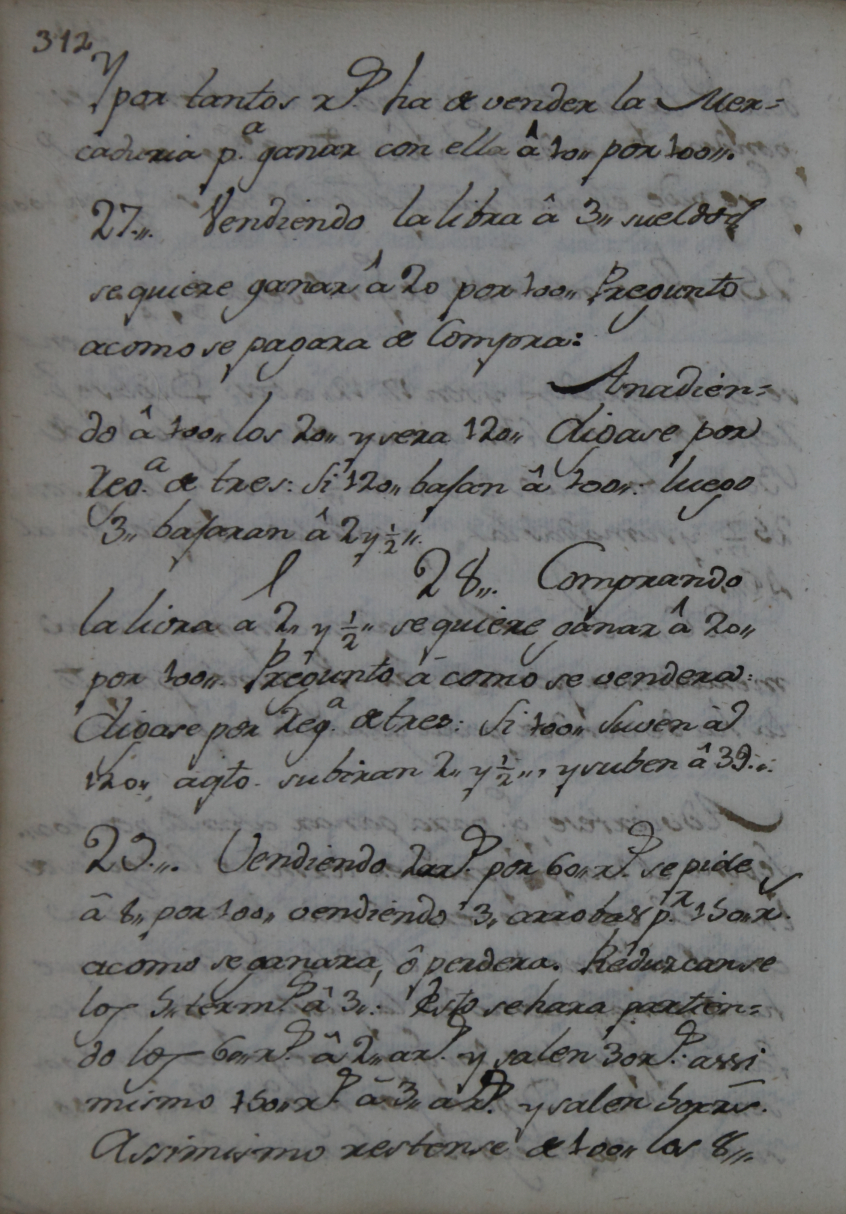 312
Y por tantos rˢ. ha de vender la Mer=
caduria p.ª ganar con ella â 10,, por 100,,.
27,,. Vendiendo la libra â 3,, sueldos
se quiere ganar â 20 por 100,, Pregunto
acomo se pagara de Compra:
Anadien=
do â 100,, los 20,, y sera 120,, Digase por
Reg.ª de tres: Si 120,, bajan â 100,,: luego
3,, bajaran â 2 y ½,,.
28,,. Comprando
la livra a 2,, y ½,, se quiere ganar â 20,,
por 100,,. Pregunto â como se vendera:
Digase por Reg.ª de tres: Si 100,, suven â
120,, aqto. subiran 2,, y ½,,, y suben â 3,,.
29,,. Vendiendo 2 arˢ. por 60,, rˢ. se pide
â 8,, por 100,, vendiendo 3,, arrobas p.r 150,, rˢ.
acomo se ganara, ô perdera. Reduzcanse
los 5,, termˢ. â 3,,: Esto se hara partien=
do los 60,, rˢ. â 2,, arˢ. y salen 30 rˢ.: assi
mismo 150,, rˢ. â 3,, arˢ. y salen 50 rs.
Assimismo restense de 100,, los 8,,,